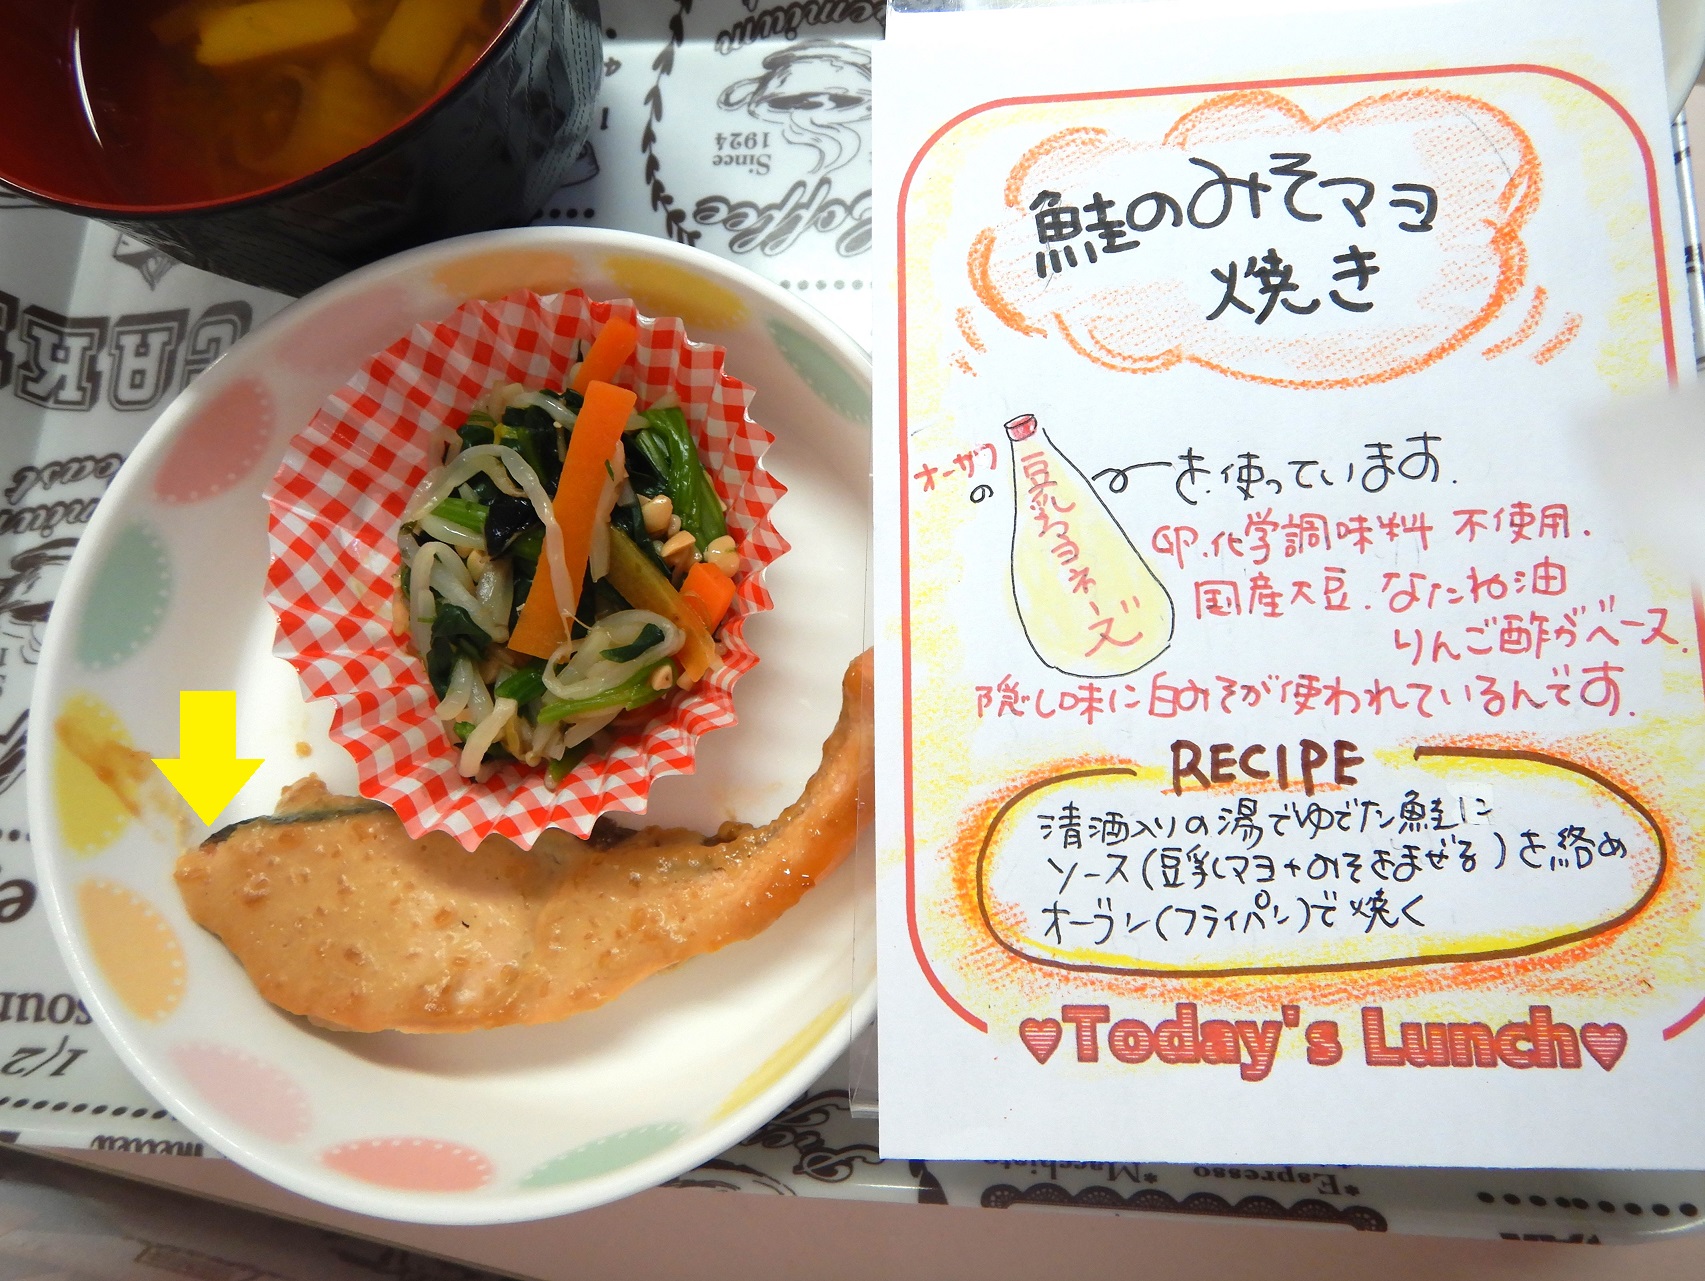 鮭のみそマヨ
焼き
オーサワ
の
豆乳マヨネーズ
を使っています.
卵.化学調味料 不使用.
国産大豆.なたね油
りんご酢がベース.
隠し味に白みそが使われているんです.
RECIPE
清酒入りの湯でゆでた鮭に
ソース(豆乳マヨ+みそをまぜる)を絡め
オーブン(フライパン)で焼く
♥Today's Lunch♥
Since
1924
Coffee
CAK
oast
1/2
*Macchiato
*Espresso